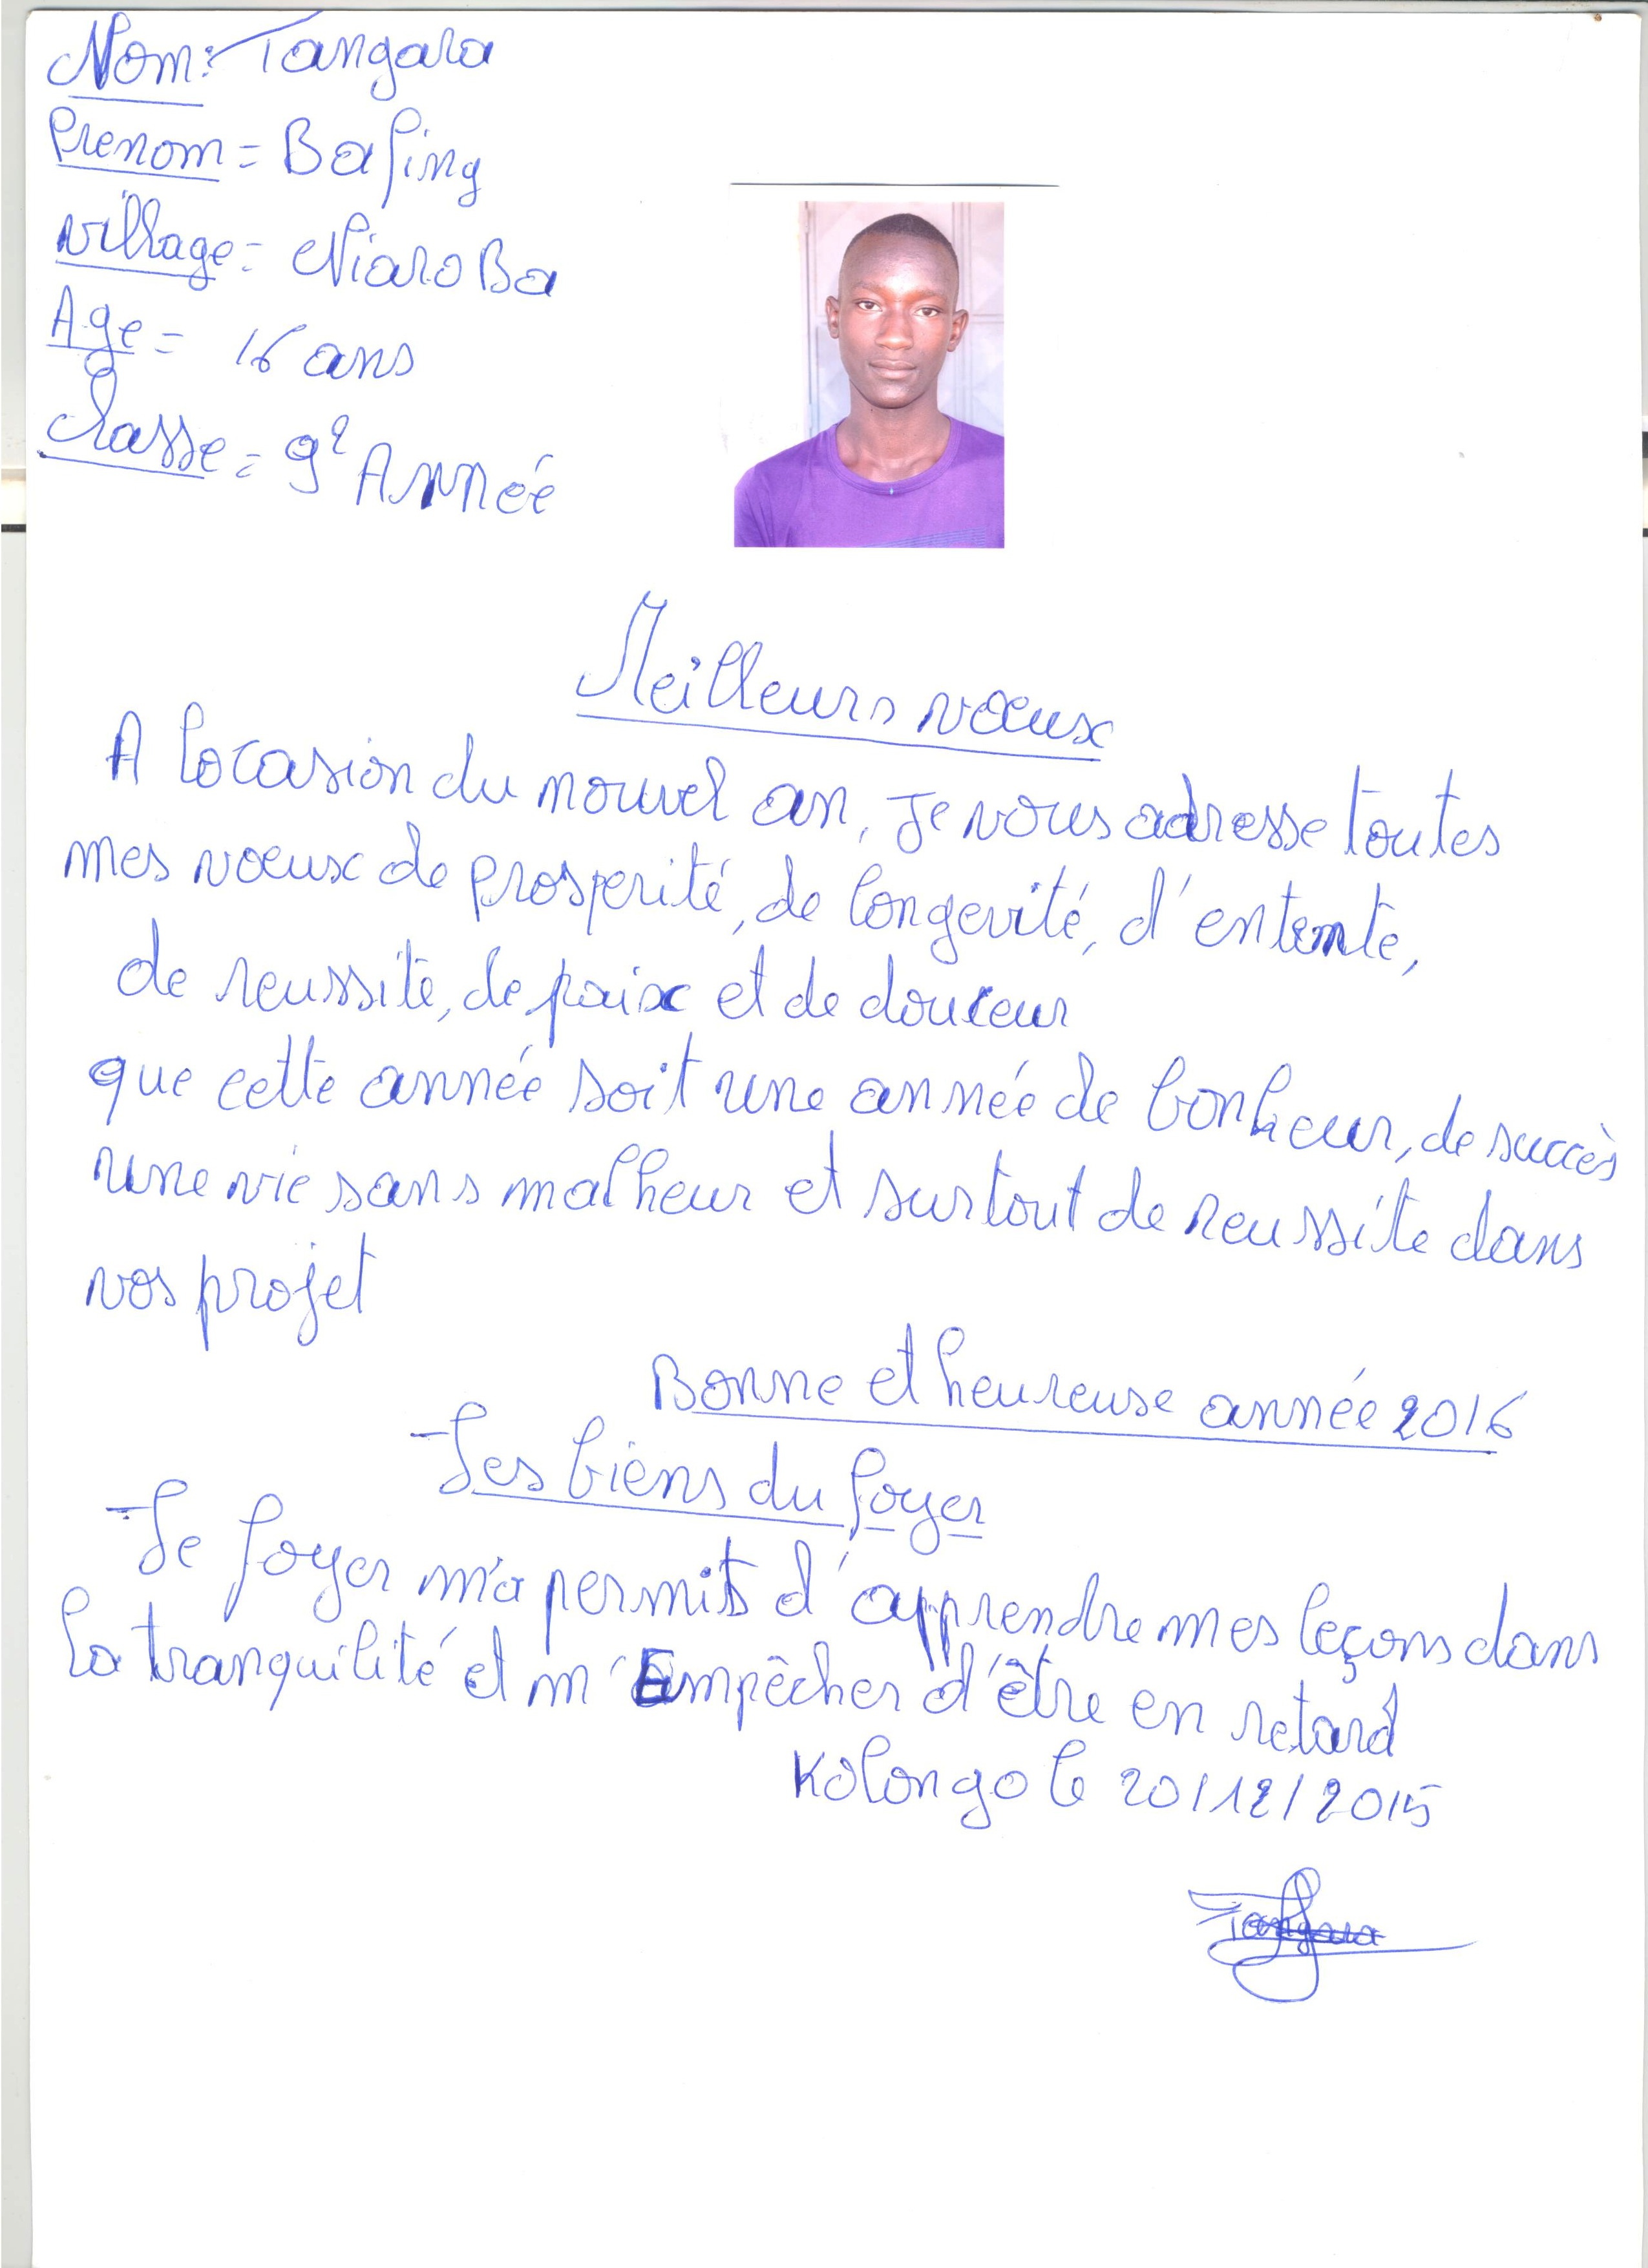 Nom: Tangara
Prenom = Bafing
village = NiaroBa
Age = 16 ans
classe = 9e Année
Meilleurs vœux
A locasion du nouvel an, Je vous adresse toutes
mes vœux de prosperité, de longevité, d'entente,
de reussite, de paix et de douceur
que cette année soit une année de bonheur, de succès
une vie sans malheur et surtout de reussite dans
vos projet
Bonne et heureuse année 2016
-Les biens du foyer
-Le foyer m'a permis d'apprendre mes leçons dans
la tranquilité et m'Empêcher d'être en retard
Kolongo le 20/12/2015
Tangara